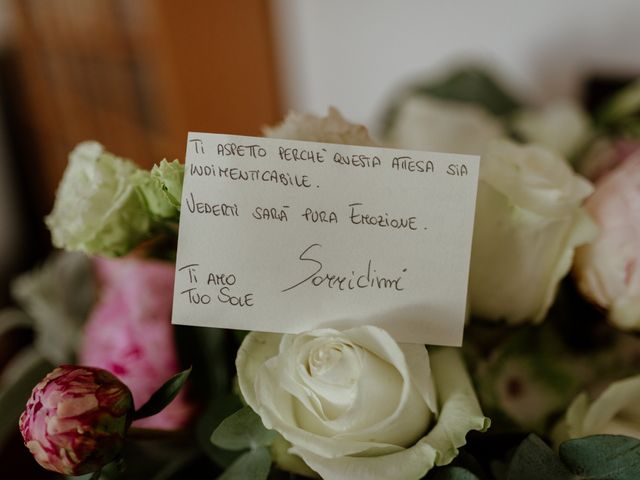 TI ASPETTO PERCHE' QUESTA ATTESA SIA
INDIMENTICABILE.
VEDERTI SARÀ PURA EMOZIONE.
TI AMO
TUO SOLE
Sorridimi